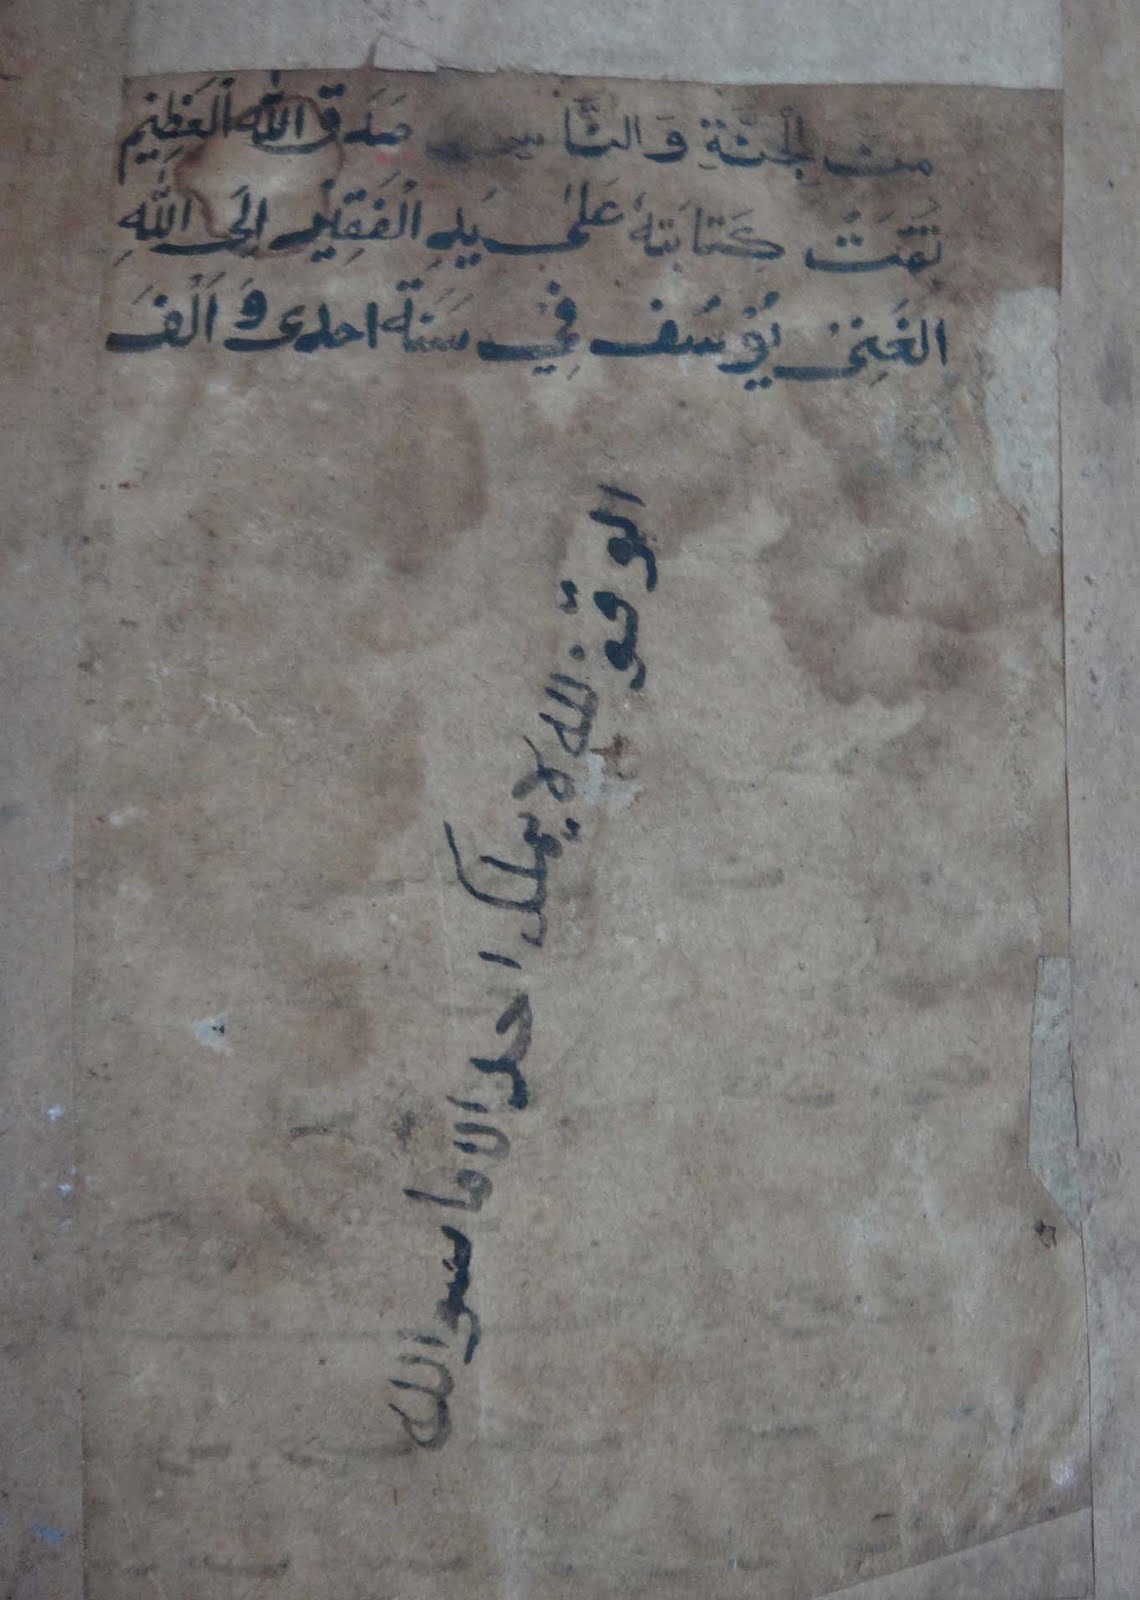 من الجنة والناس صدق الله العظيم
تمت كتابته على يد الفقير الى الله
الغني يوسف في سنة احدى و الف
الوقف لله لا يملك احد الا ما سو الله